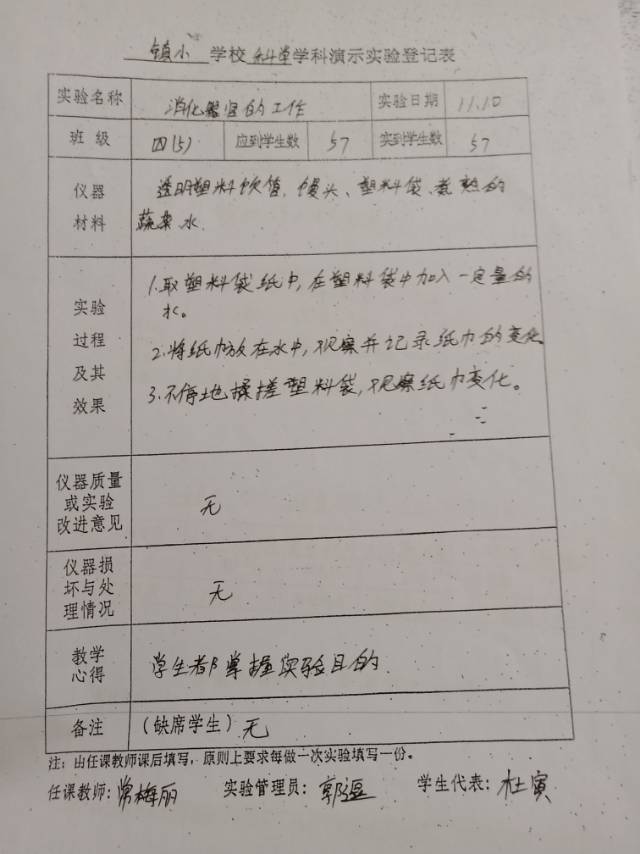 镇小 学校 科学 学科演示实验登记表
实验名称 消化器官的工作 实验日期 11.10
班级 四(5) 应到学生数 57 实到学生数 57
仪器 透明塑料饮管、馒头、塑料袋、煮熟的
材料 蔬菜水
实验过程及其效果
1.取塑料袋纸巾,在塑料袋中加入一定量的
水。
2.将纸巾放在水中,观察并记录纸巾的变化
3.不停地揉搓塑料袋,观察纸巾变化。
仪器质量
或实验 无
改进意见
仪器损
坏与处 无
理情况
教学
心得 学生都掌握实验目的
备注 (缺席学生) 无
注:由任课教师课后填写,原则上要求每做一次实验填写一份。
任课教师:常梅丽 实验管理员:郭 学生代表:杜寅